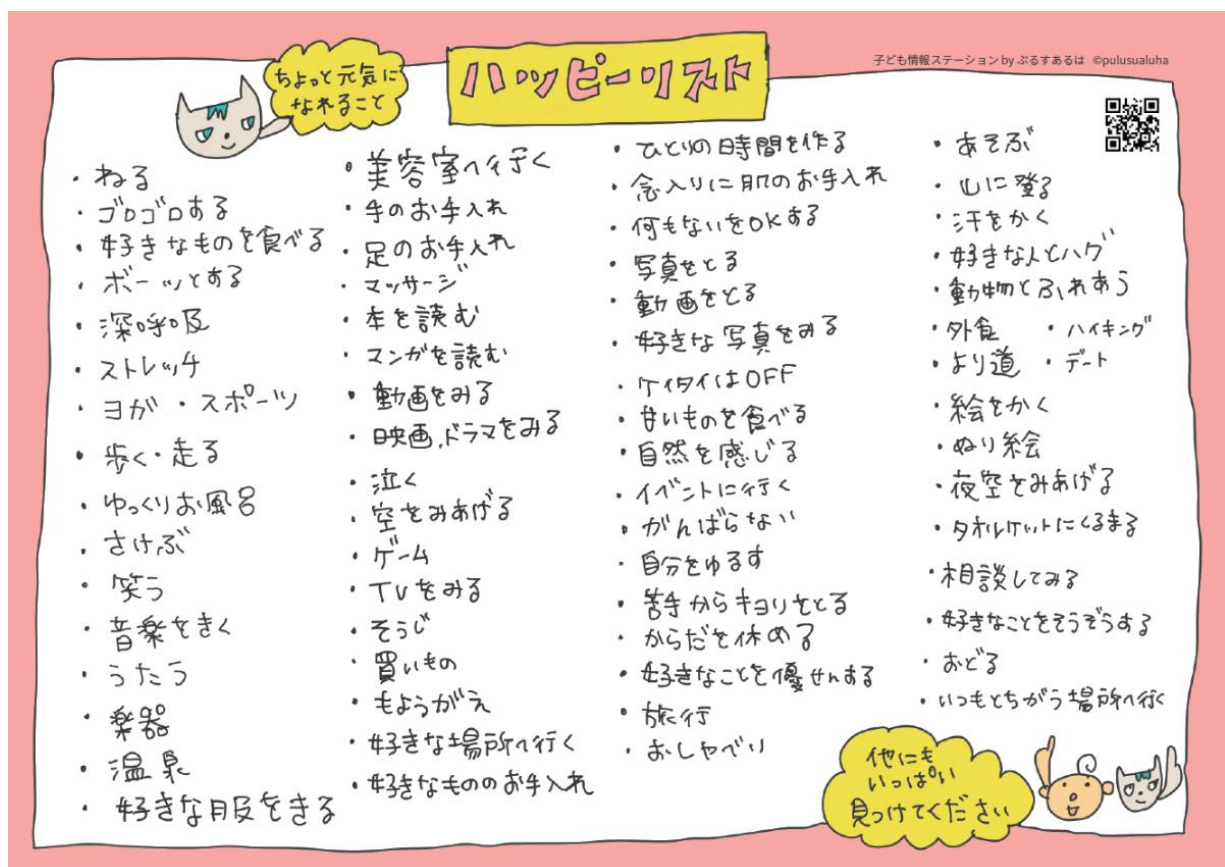 子ども情報ステーション by ぷるすあるは ©pulusualuha
ハッピーリスト
ちょっと元気に
なれること
・ねる
・ゴロゴロする
・好きなものを食べる
・ボーッとする
・深呼吸
・ストレッチ
・ヨガ ・スポーツ
・歩く・走る
・ゆっくりお風呂
・さけぶ
・笑う
・音楽をきく
・うたう
・楽器
・温泉
・好きな服をきる
・美容室へ行く
・手のお手入れ
・足のお手入れ
・マッサージ
・本を読む
・マンガを読む
・動画をみる
・映画、ドラマをみる
・泣く
・空をみあげる
・ゲーム
・TVをみる
・そうじ
・買いもの
・もようがえ
・好きな場所へ行く
・好きなもののお手入れ
・ひとりの時間を作る
・念入りに肌のお手入れ
・何もないをOKする
・写真をとる
・動画をとる
・好きな写真をみる
・ケイタイはOFF
・甘いものを食べる
・自然を感じる
・イベントに行く
・がんばらない
・自分をゆるす
・苦手からキョリをとる
・からだを休める
・好きなことを優せんする
・旅行
・おしゃべり
・あそぶ
・山に登る
・汗をかく
・好きな人とハグ
・動物とふれあう
・外食 ・ハイキング
・より道 ・デート
・絵をかく
・ぬり絵
・夜空をみあげる
・タオルケットにくるまる
・相談してみる
・好きなことをそうぞうする
・おどる
・いつもとちがう場所へ行く
他にも
いっぱい
見つけてください